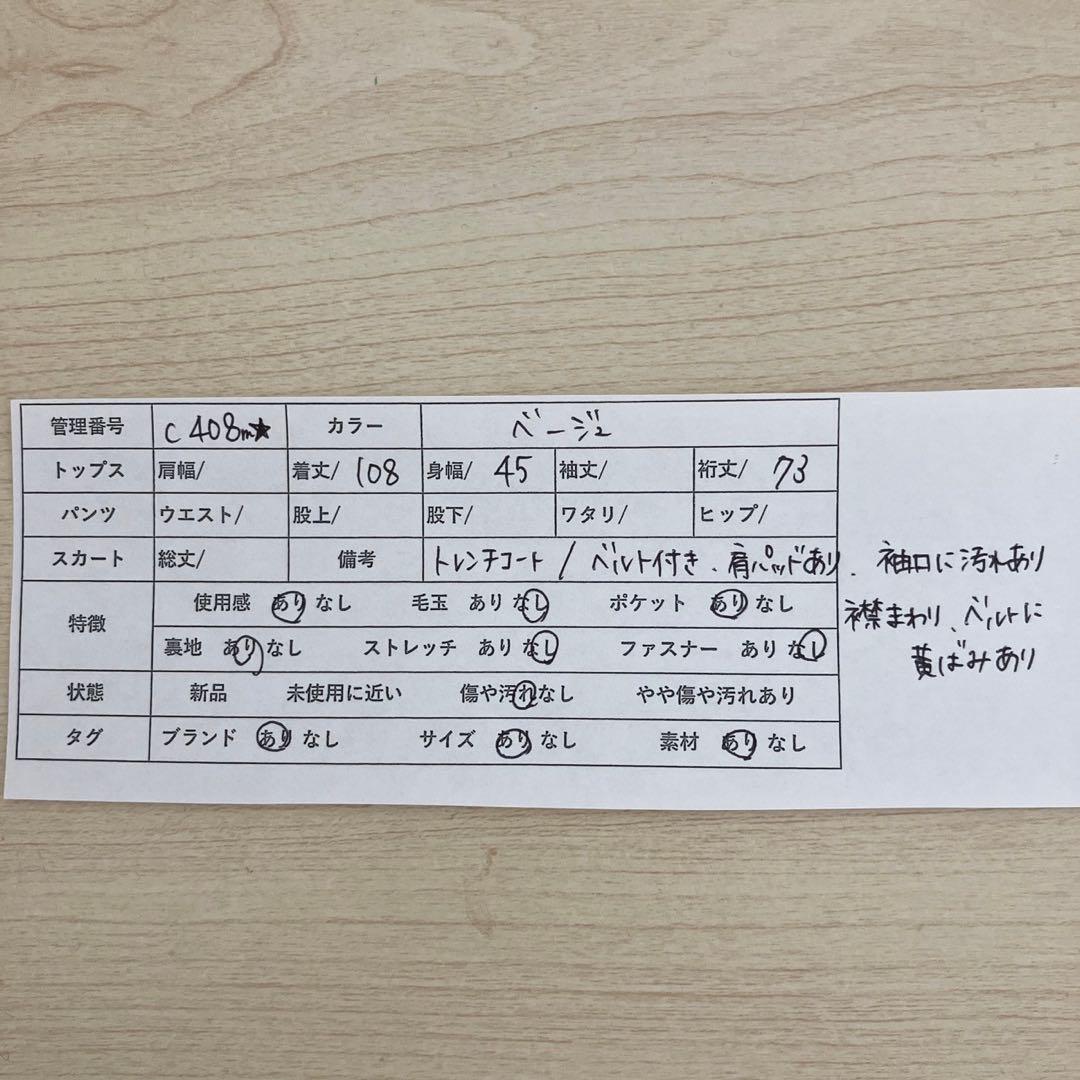 管理番号 C408m★ カラー ベージュ
トップス 肩幅/ 着丈/ 108 身幅/ 45 袖丈/ 裄丈/ 73
パンツ ウエスト/ 股上/ 股下/ ワタリ/ ヒップ/
スカート 総丈/ 備考 トレンチコート / ベルト付き、肩パッドあり、袖口に汚れあり
襟まわり、ベルトに
黄ばみあり
特徴 使用感 あり なし 毛玉 あり なし ポケット あり なし
裏地 あり なし ストレッチ あり なし ファスナー あり なし
状態 新品 未使用に近い 傷や汚れなし やや傷や汚れあり
タグ ブランド あり なし サイズ あり なし 素材 あり なし